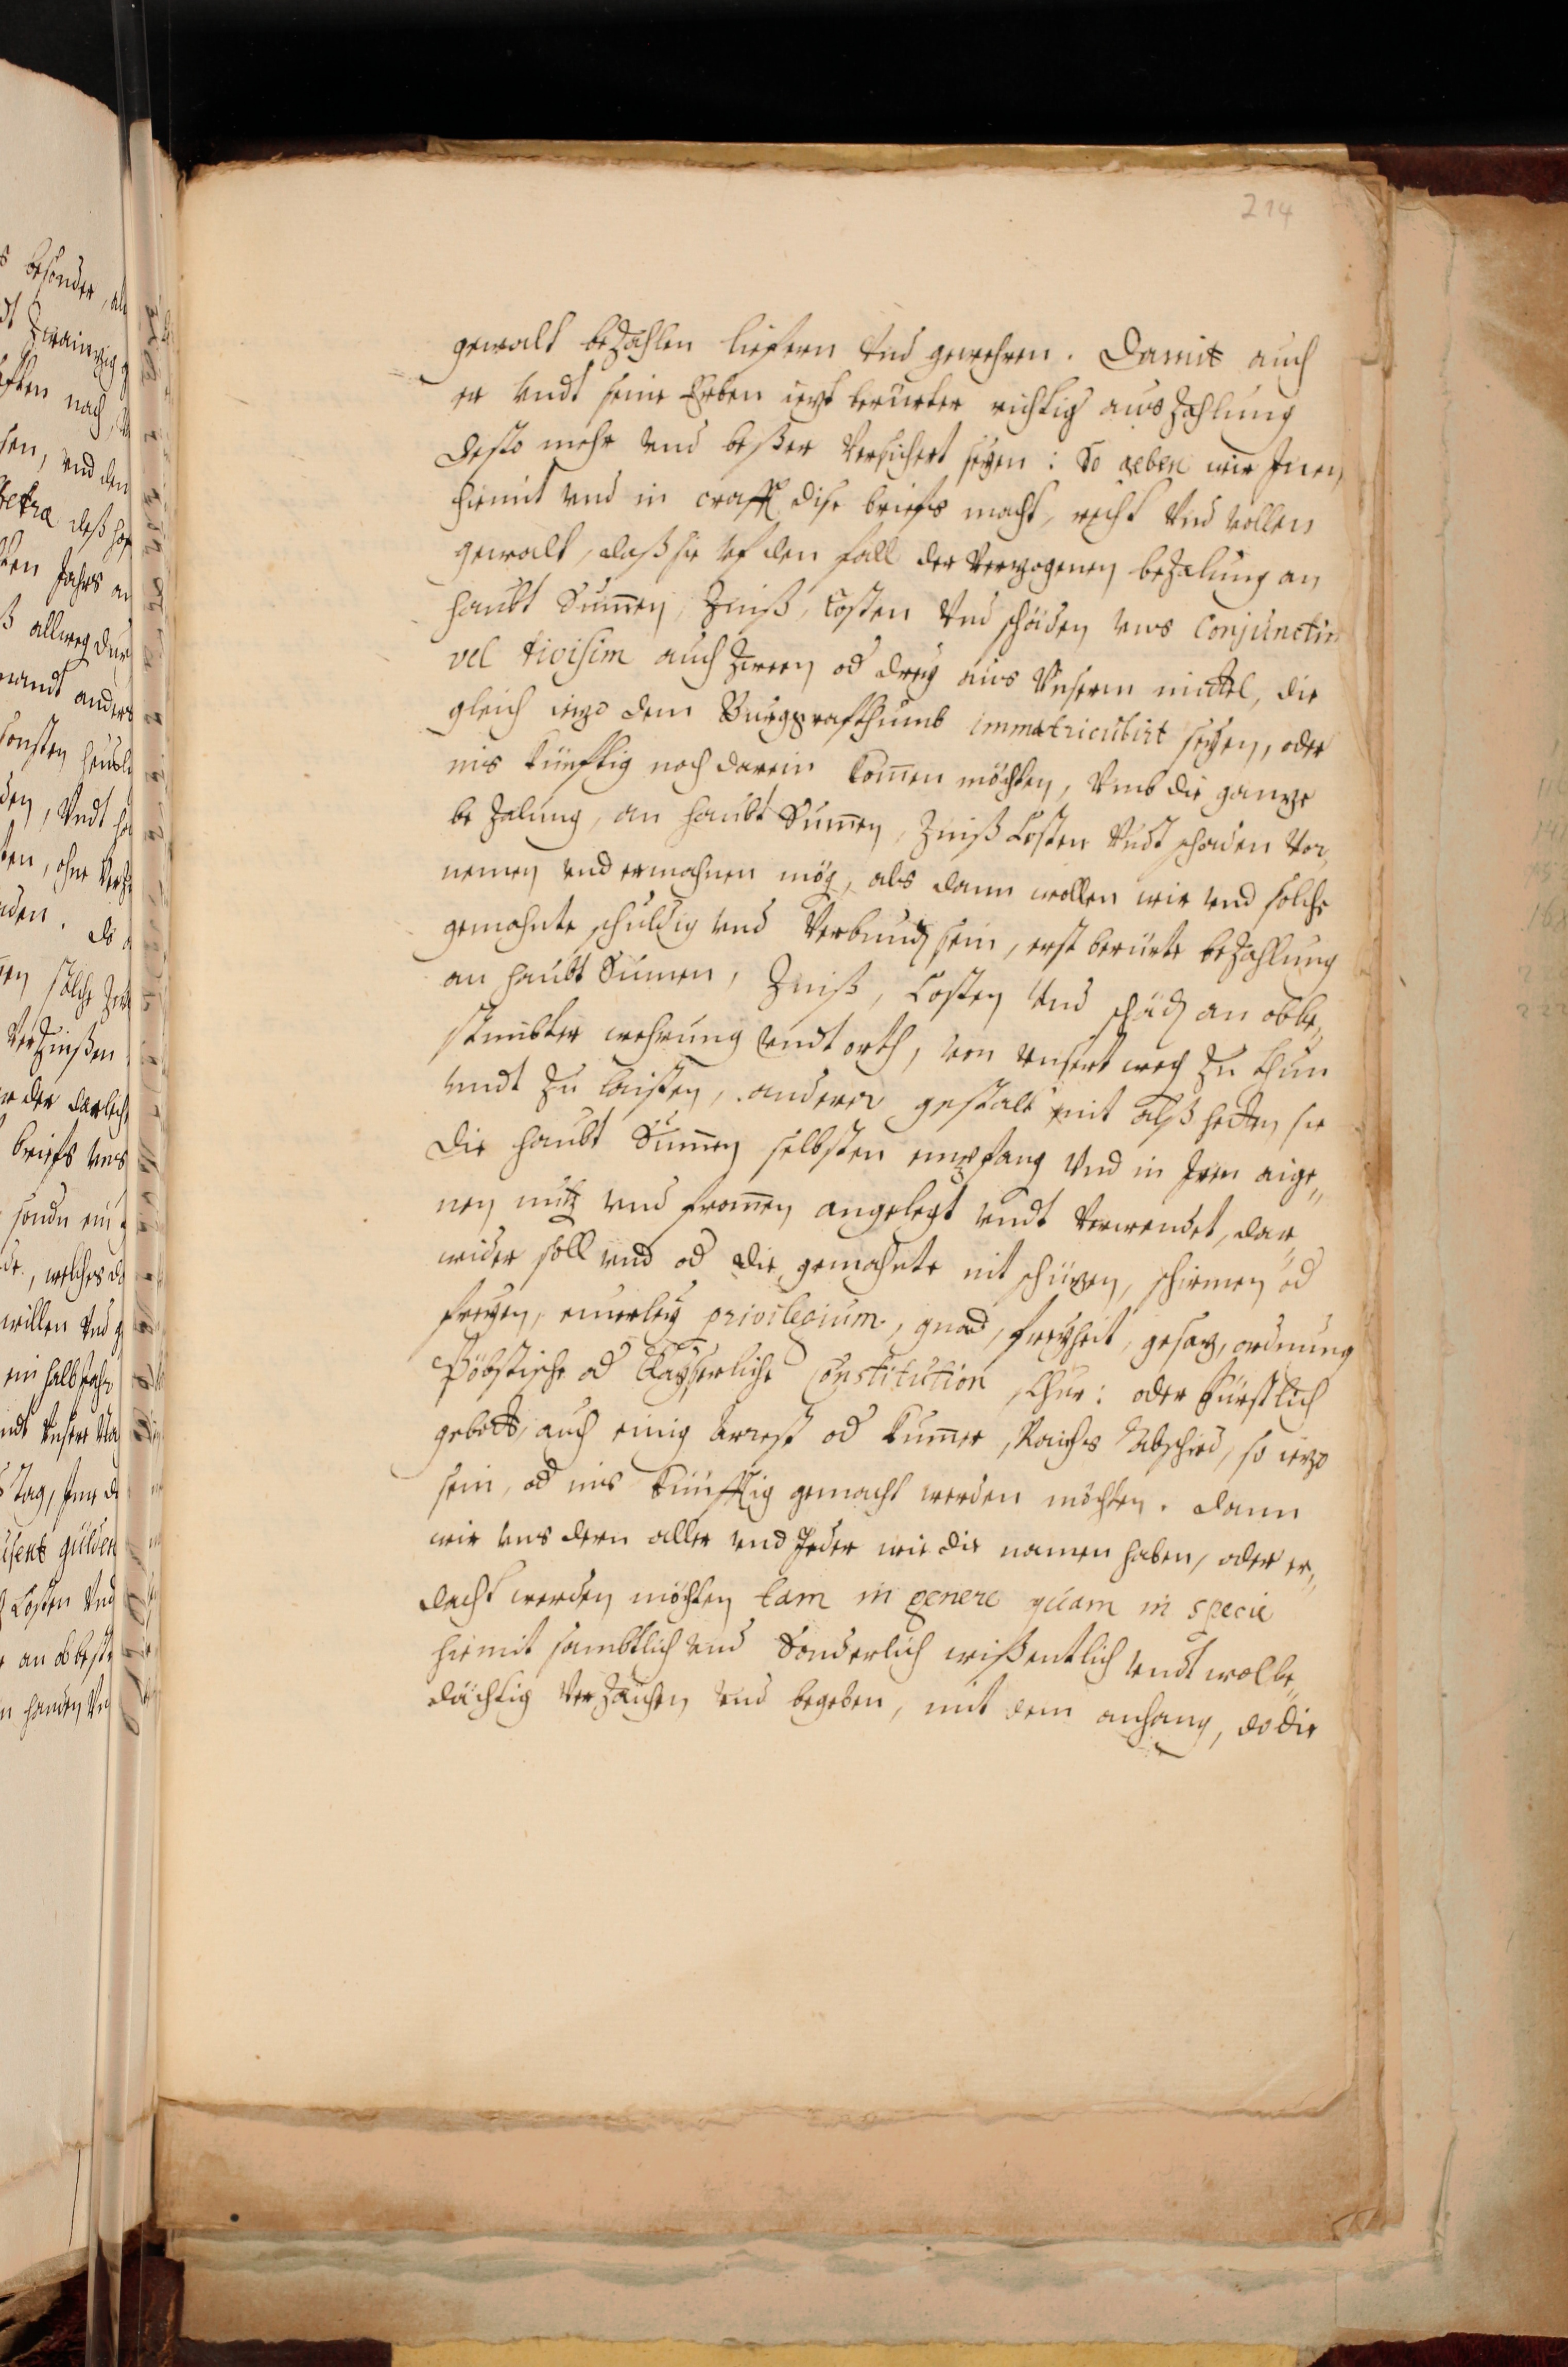 214
gewalt bezahlen liefern vnd gewehren. Damit auch
er vndt seine Erben iezt berürter richtig auszahlung
desto mehr vnd beßer versichert seyen: So geben wir Inen
hiemit vnd in crafft dise briefs macht, recht vnd vollen
gewalt, daß sie vf den fall der verzogenen bezalung an
haubt Summen, Zinß, Costen vnd schäden vns Conjunctim
vel tivisim auch zween od drey aus vnserm mittel, die
gleich iezo dem Burggrafthumb immatriculirt seyen, oder
ins künfftig noch darein kommen möchten, vmb die ganze
bezalung, an haubt Summen, Zinß Costen vndt schaden vor
nemen vnd ermahnen mög, als dann wollen wir vnd solche
gemahnte schuldig vnd verbund sein, erst berürte bezahlung
an haubt Sumen, Zinß, Costen vnd schäd an obbe„
stimbter wehrung vndt orth, von vnsert weg zu thun
vndt zu laisten, anderer gestalt nit alß hetten sie
die haubt Summen selbsten empfang vnd in Iren aige„
nen nutz vnd frommen angelegt vndt verwendet, dar„
wider soll vnd od die gemahnte nit schüzen, schirmen od
freyen, einerley privilegium, gnad, freyheit, gesaz, ordnung
Päbstische od Kayserliche Constitution Chur: oder Fürstlich
gebott, auch einig Arrest od kummer, Raichs Abschied, so iezo
sein, od ins künfftig gemacht werden möchten. Dann
wir vns dern aller vnd Jeder wie die namen haben, oder er„
dacht werden möchten tam in genere quam in specie
hiemit sambtlich vnd Sonderlich wißentlich vndt wolbe„
dächtig verzaichen vnd begeben, mit dem anhang, do die